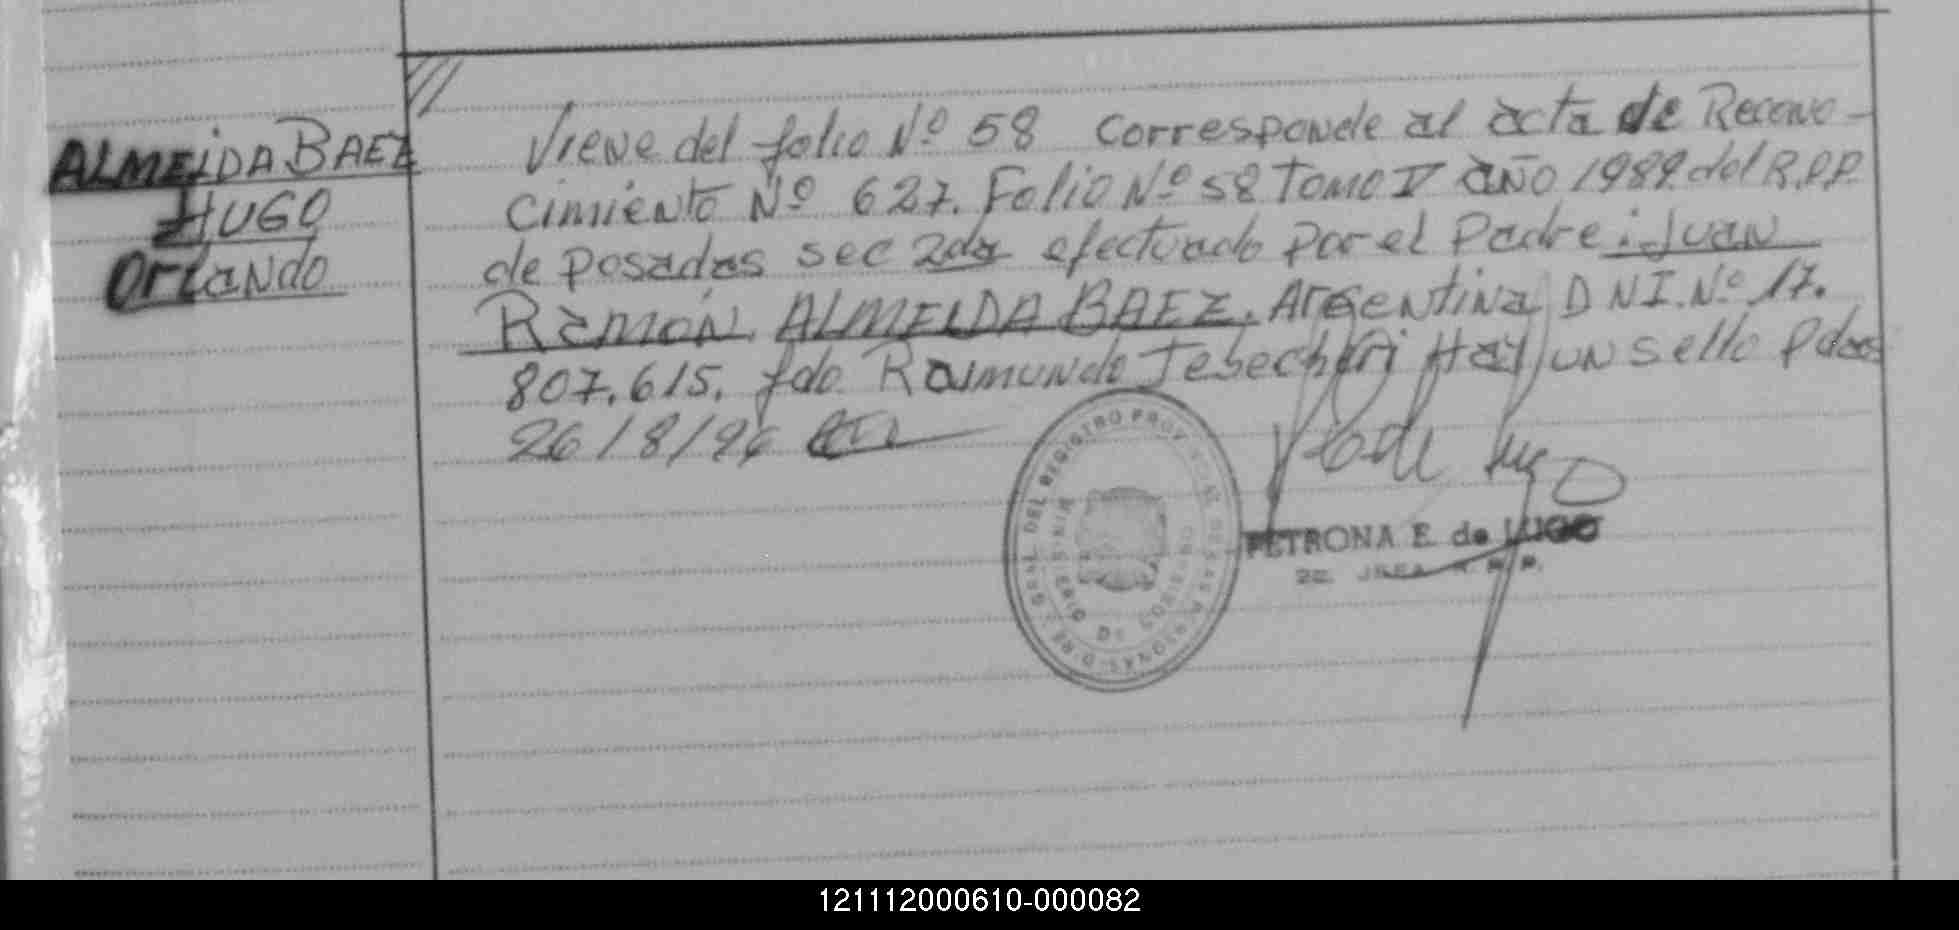 ALMEIDA BAEZ
HUGO
Orlando
Viene del folio Nº 58 Corresponde al acta de Recono-
cimiento Nº 627. Folio Nº 58 Tomo V año 1989 del R.P.P.
de posadas sec 2da efectuado por el Padre: Juan
Ramón ALMEIDA BAEZ. Argentina DNI. Nº 17.
807.615. fdo. Raimundo Jebechari Hay un sello Pdas
26/8/94
DIREC. GRAL. DEL REGISTRO PROVINCIAL DE LAS PERSONAS
MINISTERIO DE GOBIERNO
PETRONA E. de LUGO
2da. JEFA R. P. P.
121112000610-000082